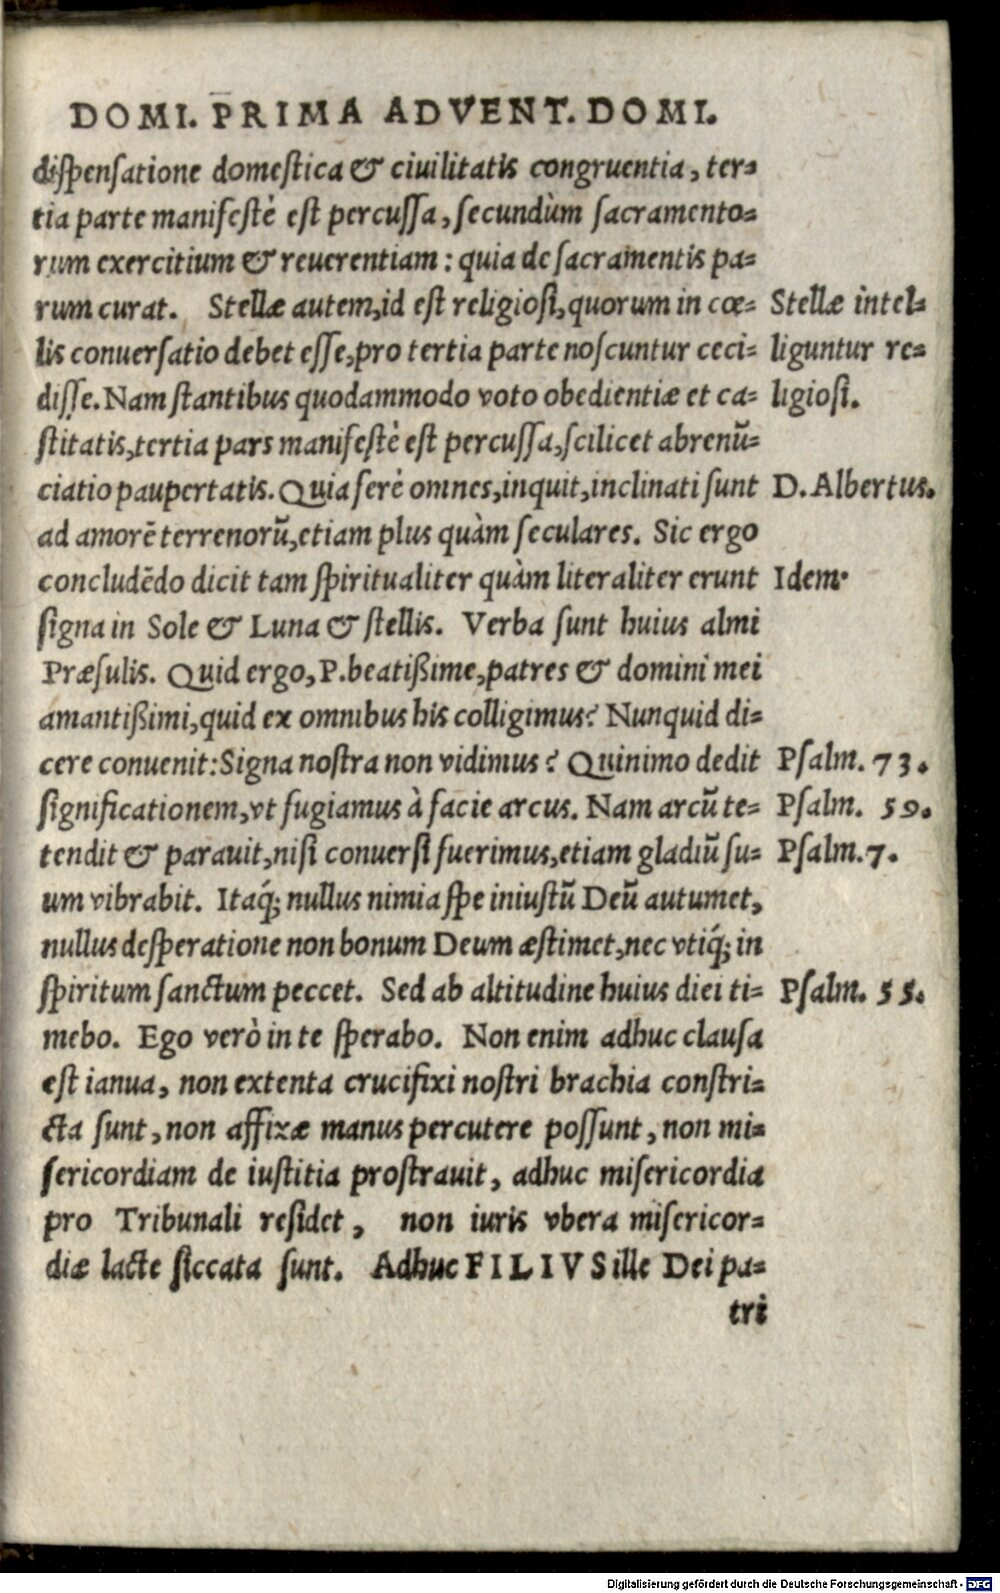 DOMI. PRIMA ADVENT. DOMI.
dispensatione domestica & ciuilitatis congruentia, ter-
tia parte manifestè est percussa, secundùm sacramento-
rum exercitium & reuerentiam: quia de sacramentis pa-
rum curat. Stellæ autem, id est religiosi, quorum in cœ- Stellæ intel-
lis conuersatio debet esse, pro tertia parte noscuntur ceci- liguntur re-
disse. Nam stantibus quodammodo voto obedientiæ et ca- ligiosi.
stitatis, tertia pars manifestè est percussa, scilicet abrenũ-
ciatio paupertatis. Quia ferè omnes, inquit, inclinati sunt D. Albertus.
ad amorẽ terrenorũ, etiam plus quàm seculares. Sic ergo
concludẽdo dicit tam spiritualiter quàm literaliter erunt Idem.
signa in Sole & Luna & stellis. Verba sunt huius almi
Præsulis. Quid ergo, P. beatißime, patres & domini mei
amantißimi, quid ex omnibus his colligimus? Nunquid di-
cere conuenit: Signa nostra non vidimus? Quinimo dedit Psalm. 73.
significationem, vt fugiamus à facie arcus. Nam arcũ te- Psalm. 59.
tendit & parauit, nisi conuersi fuerimus, etiam gladiũ su- Psalm. 7.
um vibrabit. Itaq́; nullus nimia spe iniustũ Deũ autumet,
nullus desperatione non bonum Deum æstimet, nec vtiq́; in
spiritum sanctum peccet. Sed ab altitudine huius diei ti- Psalm. 55.
mebo. Ego verò in te sperabo. Non enim adhuc clausa
est ianua, non extenta crucifixi nostri brachia constri-
cta sunt, non affixæ manus percutere possunt, non mi-
sericordiam de iustitia prostrauit, adhuc misericordia
pro Tribunali residet, non iuris vbera misericor-
diæ lacte siccata sunt. Adhuc FILIVS ille Dei pa-
tri
Digitalisierung gefördert durch die Deutsche Forschungsgemeinschaft - DFG